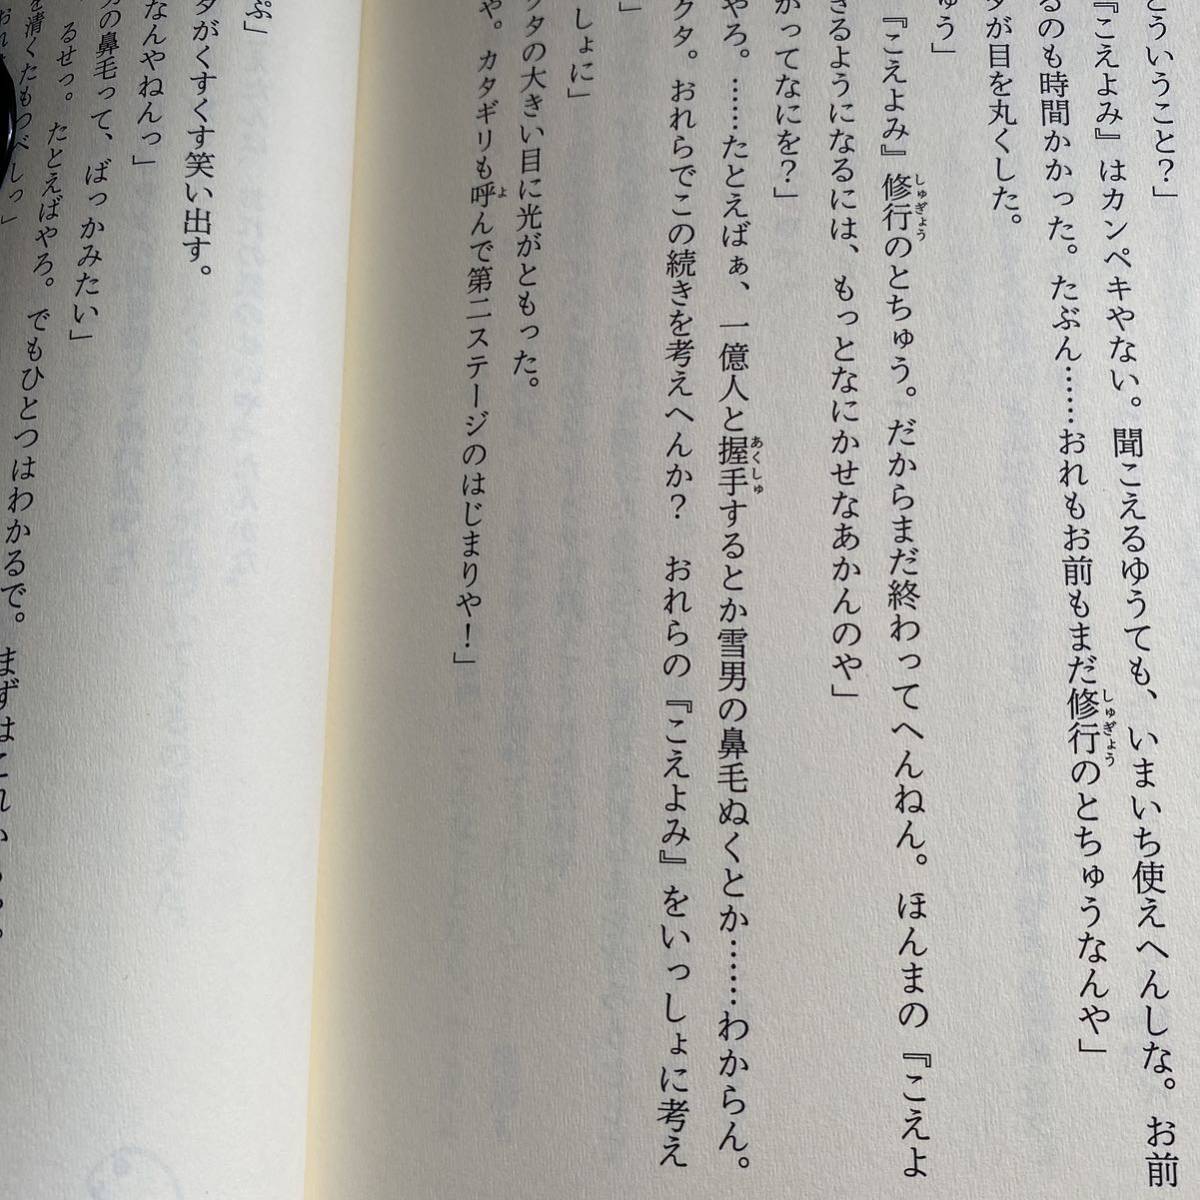 どういうこと？」
『こえよみ』はカンペキやない。聞こえるゆうても、いまいち使えへんしな。お前
るのも時間かかった。たぶん……おれもお前もまだ修行のとちゅうなんや」
タが目を丸くした。
ゅう」
『こえよみ』修行のとちゅう。だからまだ終わってへんねん。ほんまの『こえよ
きるようになるには、もっとなにかせなあかんのや」
かってなにを？」
やろ。……たとえばぁ、一億人と握手するとか雪男の鼻毛ぬくとか……わからん。
クタ。おれらでこの続きを考えへんか？　おれらの『こえよみ』をいっしょに考え
」
しょに」
クタの大きい目に光がともった。
や。カタギリも呼んで第二ステージのはじまりや！」
ぷ」
タがくすくす笑い出す。
なんやねんっ」
の鼻毛って、ばっかみたい」
るせっ。たとえばやろ。でもひとつはわかるで。まずはこれ
を清くたもつべしっ」